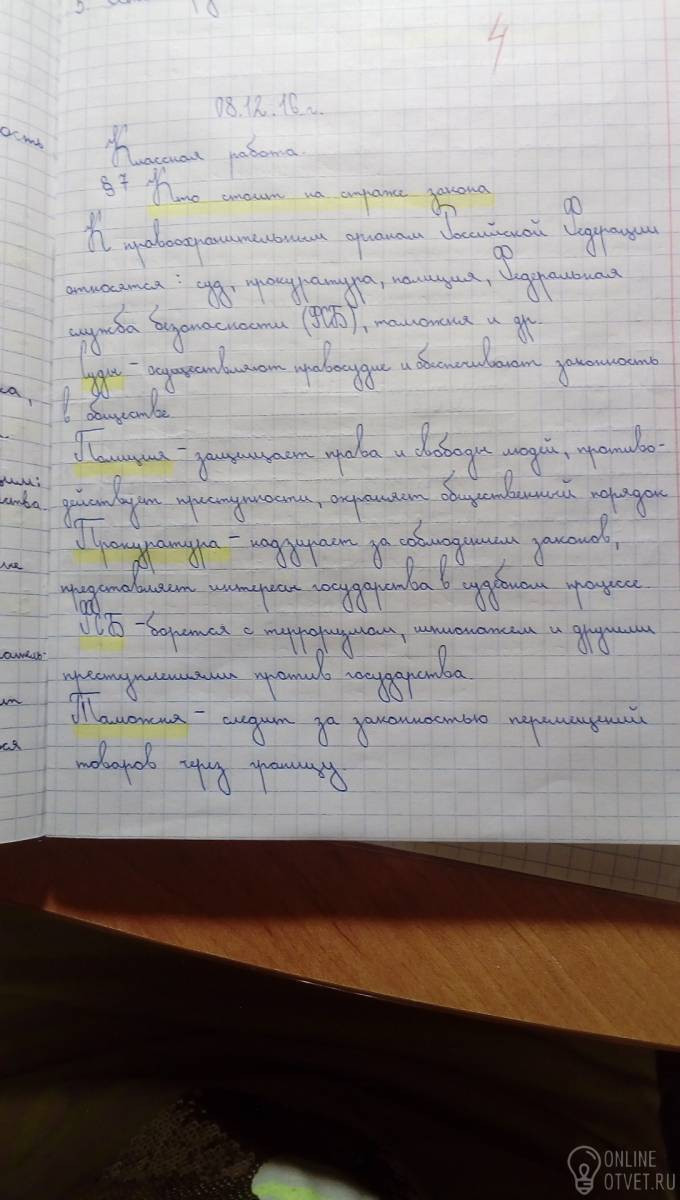 4
08.12.16 г.
Классная работа.
§ 7 Кто стоит на страже закона
К правоохранительным органам Российской Федерации
относятся: суд, прокуратура, полиция, Федеральная
служба безопасности (ФСБ), таможня и др.
Суды - осуществляют правосудие и обеспечивают законность
в обществе
Полиция - защищает права и свободы людей, противо-
действует преступности, охраняет общественный порядок
Прокуратура - надзирает за соблюдением законов,
представляет интересы государства в судебном процессе.
ФСБ - борется с терроризмом, шпионажем и другими
преступлениями против государства.
Таможня - следит за законностью перемещений
товаров через границу.
ость
 са,
ства.
ся
ONLINE
OTVET.RU